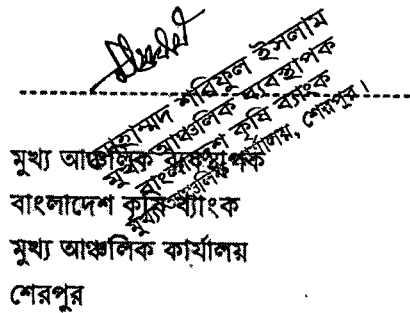 মোহাম্মদ শরিফুল ইসলাম
মুখ্য আঞ্চলিক ব্যবস্থাপক
বাংলাদেশ কৃষি ব্যাংক
মুখ্য আঞ্চলিক কার্যালয়, শেরপুর।
মুখ্য আঞ্চলিক ব্যবস্থাপক
বাংলাদেশ কৃষি ব্যাংক
মুখ্য আঞ্চলিক কার্যালয়
শেরপুর